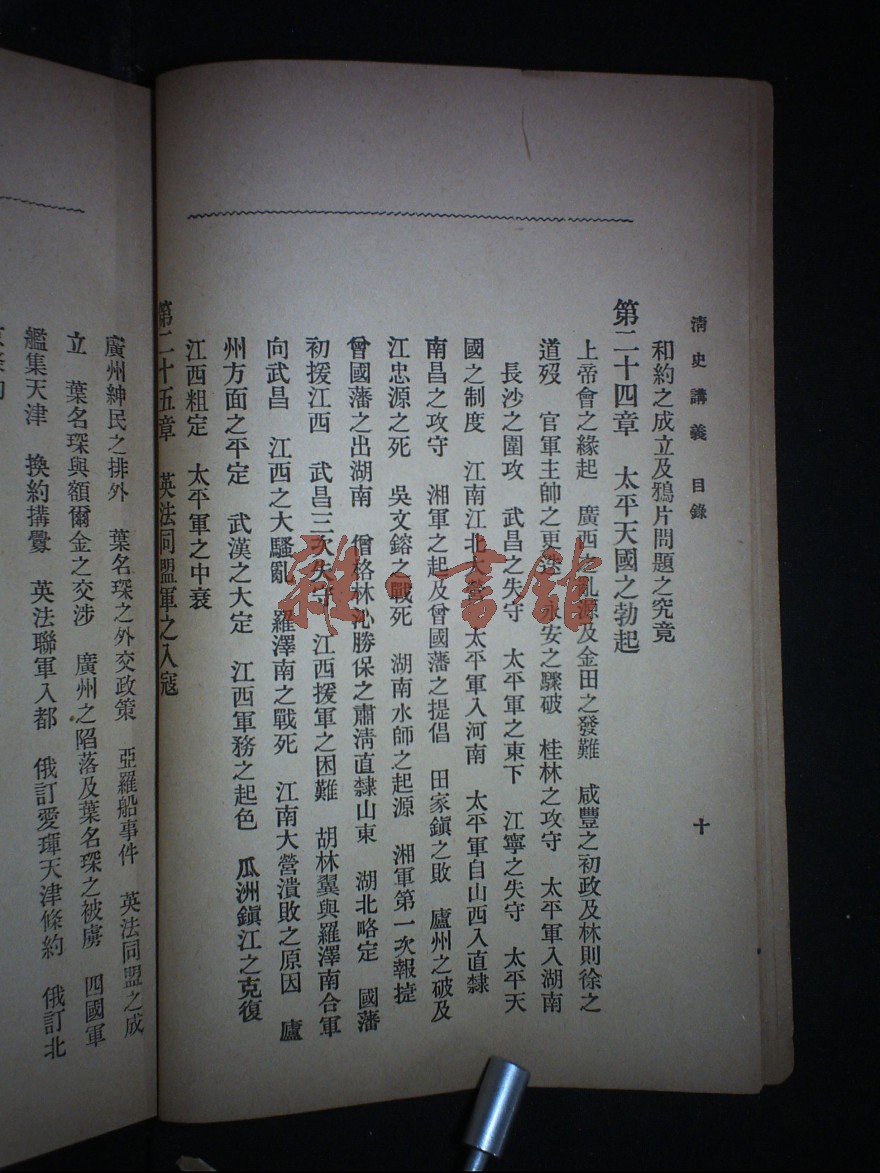 清史講義　目錄
十
和約之成立及鴉片問題之究竟
第二十四章　太平天國之勃起
上帝會之緣起　廣西之亂源及金田之發難　咸豐之初政及林則徐之
道歿　官軍主帥之更迭　永安之驟破　桂林之攻守　太平軍入湖南
長沙之圍攻　武昌之失守　太平軍之東下　江寧之失守　太平天
國之制度　江南江北大營　太平軍入河南　太平軍自山西入直隸
南昌之攻守　湘軍之起及曾國藩之提倡　田家鎮之敗　廬州之破及
江忠源之死　吳文鎔之戰死　湖南水師之起源　湘軍第一次報捷
曾國藩之出湖南　僧格林沁勝保之肅清直隸山東　湖北略定　國藩
初援江西　武昌三次失守　江西援軍之困難　胡林翼與羅澤南合軍
向武昌　江西之大騷亂　羅澤南之戰死　江南大營潰敗之原因　廬
州方面之平定　武漢之大定　江西軍務之起色　瓜洲鎮江之克復
江西粗定　太平軍之中衰
第二十五章　英法同盟軍之入寇
廣州紳民之排外　葉名琛之外交政策　亞羅船事件　英法同盟之成
立　葉名琛與額爾金之交涉　廣州之陷落及葉名琛之被虜　四國軍
艦集天津　換約搆釁　英法聯軍入都　俄訂愛琿天津條約　俄訂北
京條約
雜·書館